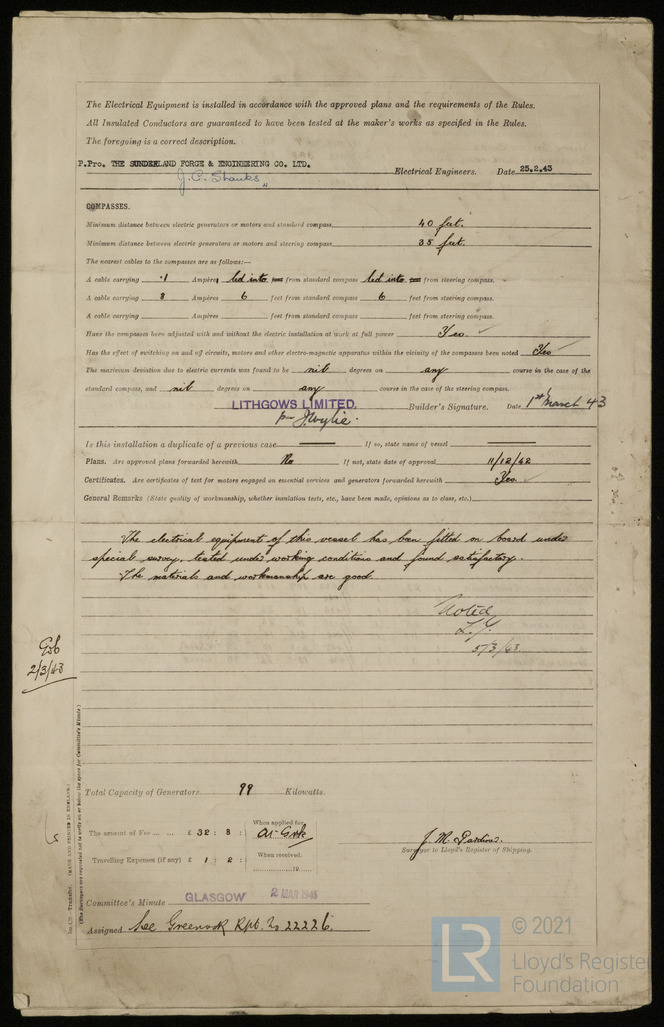 The Electrical Equipment is installed in accordance with the approved plans and the requirements of the Rules.
All Insulated Conductors are guaranteed to have been tested at the maker's works as specified in the Rules.
The foregoing is a correct description.
P.Pro. THE SUNDERLAND FORGE & ENGINEERING CO. LTD.
J. C. Shanks Electrical Engineers. Date 25.2.43
COMPASSES.
Minimum distance between electric generators or motors and standard compass 40 feet.
Minimum distance between electric generators or motors and steering compass 35 feet.
The nearest cables to the compasses are as follows:—
A cable carrying .1 Ampères led into from standard compass led into from steering compass.
A cable carrying 8 Ampères 6 feet from standard compass 6 feet from steering compass.
A cable carrying Ampères feet from standard compass feet from steering compass.
Have the compasses been adjusted with and without the electric installation at work at full power Yes
Has the effect of switching on and off circuits, motors and other electro-magnetic apparatus within the vicinity of the compasses been noted Yes
The maximum deviation due to electric currents was found to be nil degrees on any course in the case of the
standard compass, and nil degrees on any course in the case of the steering compass.
LITHGOWS LIMITED. Builder's Signature. Date 1st March 43
per J Wylie.
Is this installation a duplicate of a previous case If so, state name of vessel
Plans. Are approved plans forwarded herewith No If not, state date of approval 11/12/42
Certificates. Are certificates of test for motors engaged on essential services and generators forwarded herewith Yes
General Remarks (State quality of workmanship, whether insulation tests, etc., have been made, opinions as to class, etc.)
The electrical equipment of this vessel has been fitted on board under
special survey, tested under working conditions and found satisfactory.
The materials and workmanship are good.
Noted
5/3/43
2/3/43
Total Capacity of Generators 99 Kilowatts.
The amount of Fee ... ... £ 32 : 8 : When applied for,
Travelling Expenses (if any) £ 1 : 2 : When received,
19
J. M.
Surveyor to Lloyd's Register of Shipping.
Committee's Minute GLASGOW 2 MAR 1943
Assigned See Greenock Rpt. No 22226
(MADE AND PRINTED IN ENGLAND.)
(The Surveyors are requested not to write on or below the space for Committee's Minute.)
LR
© 2021
Lloyd's Register
Foundation